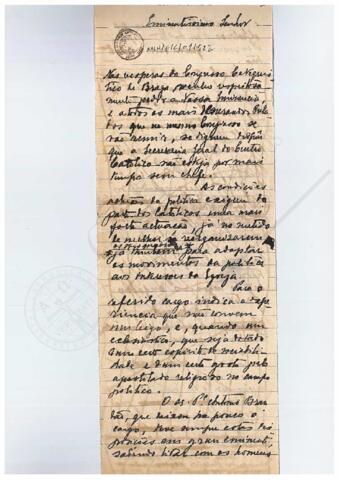 Eminentissimo Senhor
Nas vesperas do Congresso Catequis-
tico de Braga venho respeitosa-
mente pedir a Vossa Eminencia,
e a todos os mais Venerandos Prela-
dos que no mesmo Congresso se
vão reunir, se dignem dispôr
que a Secretaria Geral do Centro
Catolico não esteja por mais
tempo sem chefe.
As condições
actuais da politica exigem da
parte dos Catolicos uma mais
forte actuação, já no sentido
de melhor se reorganizarem
já tambem para adaptar
os movimentos da politica
aos interesses da Egreja.
Para o
referido cargo indica a expe-
riencia que não convem
um leigo, e, quando um
eclesiastico, que seja dotado
dum certo espirito de
e dum certo gosto pelo
apostolado religioso no campo
politico.
O Pe Antonio Bran-
dão, que deixou ha pouco o
cargo, teve sempre estas dis-
posições em grau eminente,
sabendo lidar com os homens